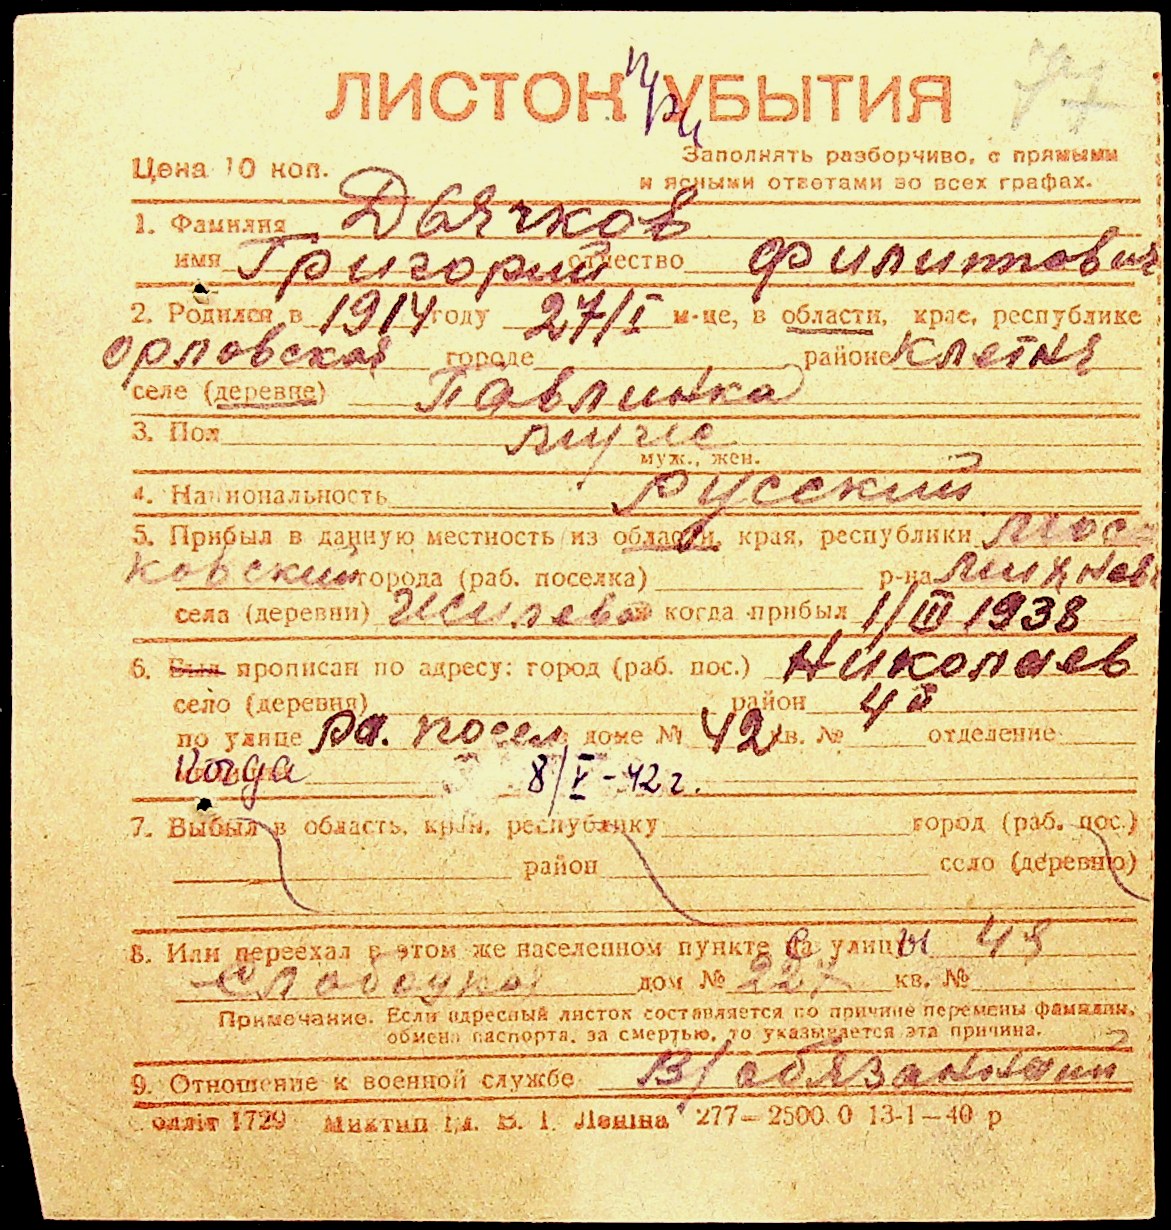 77
ЛИСТОК УБЫТИЯ
Цена 10 коп.
Заполнять разборчиво, с прямыми
и ясными ответами во всех графах.
1. Фамилия Дьячков
имя Григорий отчество Филиппович
2. Родился в 1914 году 27/I м-це, в области, крае, республике
орловская городе районе Клетня
селе (деревне) Павлинка
3. Пол муж
муж., жен.
4. Национальность русский
5. Прибыл в данную местность из области, края, республики Мос
ковский города (раб. поселка) р-на Михнев
села (деревни) Жилево когда прибыл 1/III 1938
6. Был прописан по адресу: город (раб. пос.) Николаев
село (деревня) район 4й
по улице Ра. посел доме № 42 кв. № отделение
Когда 8/V-42 г.
7. Выбыл в область, край, республику город (раб. пос.)
район село (деревню)
8. Или переехал в этом же населенном пункте с улицы 4я
Слободская дом № 227 кв. №
Примечание. Если адресный листок составляется по причине перемены фамилии,
обмена паспорта, за смертью, то указывается эта причина.
9. Отношение к военной службе В/обязанный
блліт 1729 Миктип ім. В. І. Леніна 277—2500.0 13-1—40 р